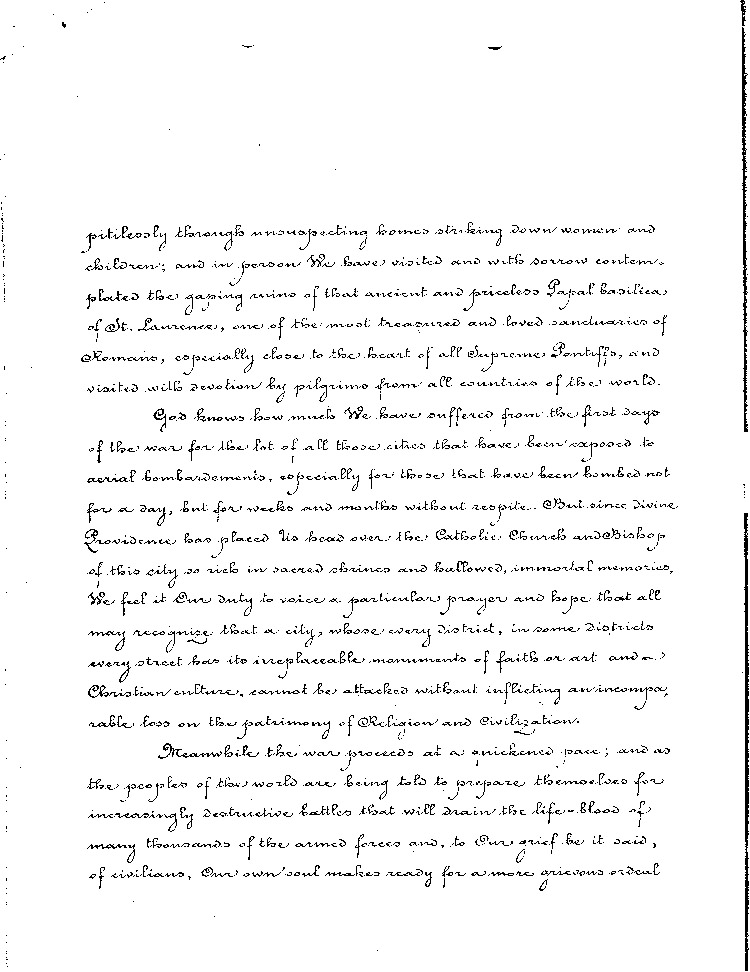 pitilessly through unsuspecting homes striking down women and
children; and in person We have visited and with sorrow contem-
plated the gaping ruins of that ancient and priceless Papal basilica
of St. Laurence, one of the most treasured and loved sanctuaries of
Romans, especially close to the heart of all Supreme Pontiffs, and
visited with devotion by pilgrims from all countries of the world.
God knows how much We have suffered from the first days
of the war for the lot of all those cities that have been exposed to
aerial bombardements, especially for those that have been bombed not
for a day, but for weeks and months without respite. But since divine
Providence has placed Us head over the Catholic Church and Bishop
of this city so rich in sacred shrines and hallowed, immortal memories,
We feel it Our duty to voice a particular prayer and hope that all
may recognize that a city, whose every district, in some districts
every street has its irreplaceable monuments of faith or art and a
Christian culture, cannot be attacked without inflicting an incompa-
rable loss on the patrimony of Religion and Civilization.
Meanwhile the war proceeds at a quickened pace; and as
the peoples of the world are being told to prepare themselves for
increasingly destructive battles that will drain the life-blood of
many thousands of the armed forces and, to Our grief be it said,
of civilians, Our own soul makes ready for a more grievous ordeal